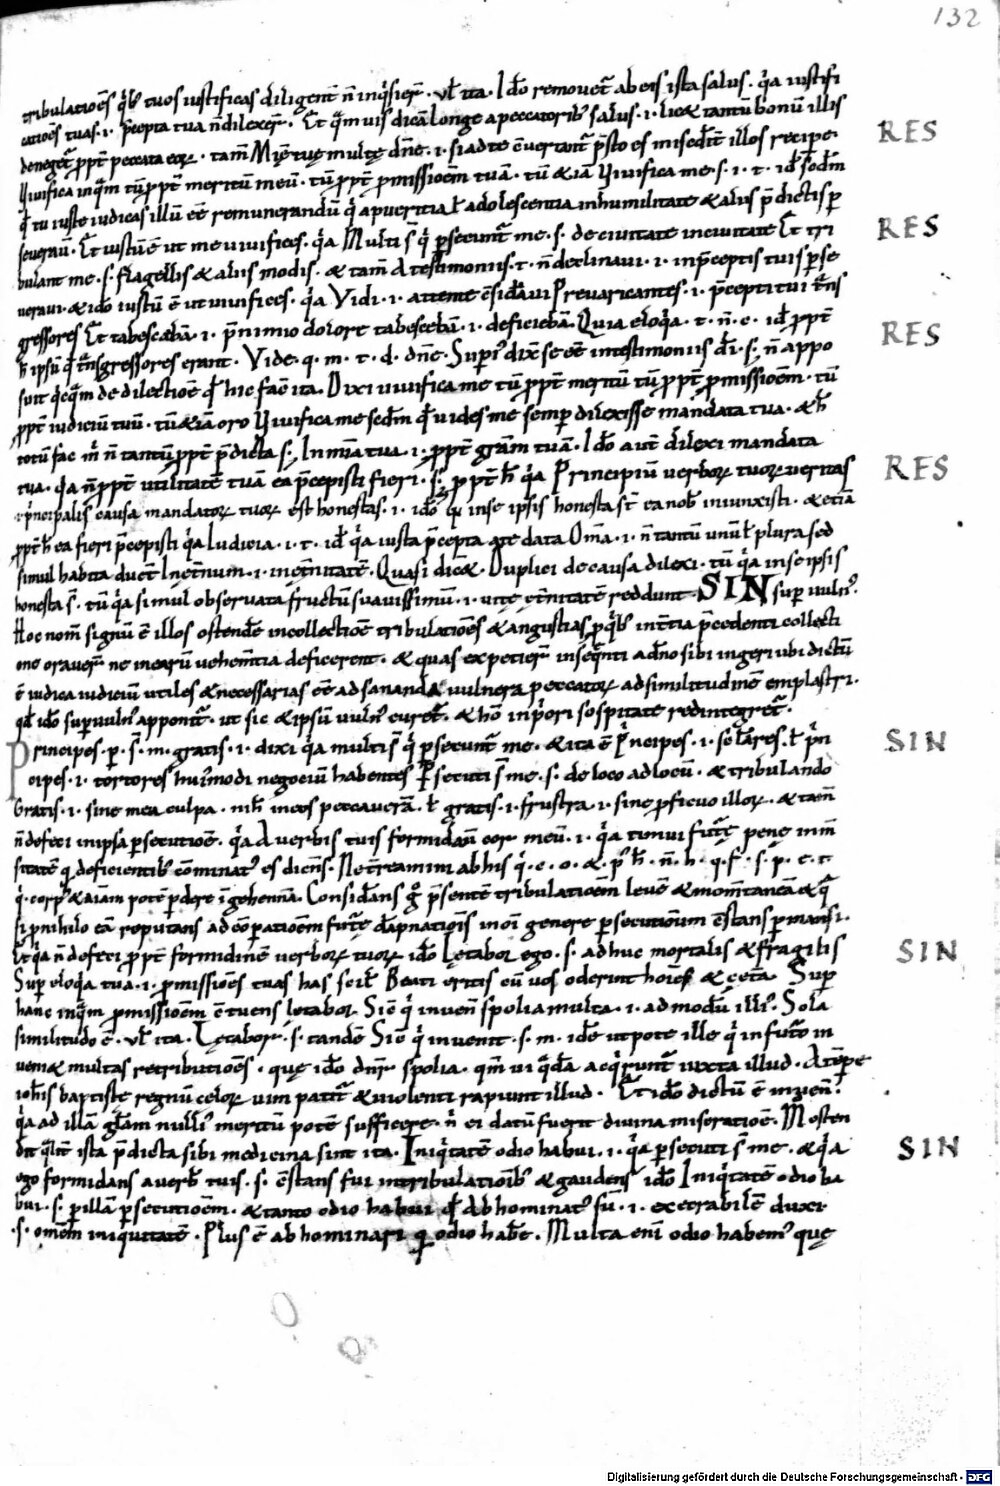 132
tribulatioēs q̄b' tuos iustificas diligent̄ n̄ inq̄sier̄. ul' ita. Ido remouet̄ ab eis ista salus. q̄a iustifi
catioēs tuas .i. p̄cepta tua n̄ dilexer̄. Et q̄m uis dicā longe a peccatorib' salus .i. licet tantū bonū illis
RES
deneget̄ ppt̄ peccata eoꝝ. tam̄ Mīe tuę multę dn̄e .i. si ad te c̄uertant̄ p̄sto es misedīt illos recipe.
Viuifica inq̄m tū ppt̄ meritū meū. tū ppt̄ pmissioēm tuā. tū etiā Viuifica me .s. i. t. id sc̄dm
q̄ tu iuste iudicas illū eē remunerandū q̄ a pueritia ł adolescentia in humilitate & aliis p̄dictis per
RES
seuerau'. Et iustū ē ut me uiuifices. q̄a Multi s̄ q̄ psecunt̄ me .s. de ciuitate in ciuitate Et tri
bulant me .s. flagellis & aliis modis. & tam̄ A testimoniis .t. n̄ declinaui .i. in p̄ceptis tuis pse
ueraui. & ido iustū ē ut uiuifices. q̄a Vidi .i. attente c̄sidāui Preuaricantes .i. p̄cepti tui t̄ns
RES
gressores Et tabescebā .i. p̄ nimio dolore tabescebā .i. deficiebā. Quia eloq̄a .t. n̄. c. id ppt̄
h̄ ipsū q̄ t̄nsgressores erant. Vide .q. m. t. d. dn̄e. Superi' dix̄ se eē in testimoniis dī .s. n̄ appo
suit q̄cq̄m de dilectioē q̄ hic facit ita. Dixi uiuifica me tū ppt̄ meritū tū ppt̄ pmissioēm. tū
ppt̄ iudiciū tuū. tū etiā oro Viuifica me secdm q̄ uides me semp dilexisse mandata tua. & h̄
totū fac m̄ n̄ tantū ppt̄ p̄dicta .s. In mīa tua .i. ppt̄ gr̄am tuā. Ido aut̄ dilexi mandata
RES
tua. q̄a n̄ ppt̄ utilitatē tuā ea p̄cepisti fieri .s. ppt̄ h̄ q̄a Principiū uerboꝝ tuoꝝ ueritas
.i. p̄ncipalis causa mandatoꝝ tuoꝝ est honestas .i. ido q̄a in se ipsis honesta st̄ ea nob' iniunxisti. & etiā
ppt̄ h̄ ea fieri p̄cepisti q̄a Iudicia .i. t. id q̄a iusta p̄cepta a te data Om̄a .i. n̄ tantū unū ł plura sed
simul habita ducēt In et̄num .i. in et̄nitatē. Quasi dicā. Duplici de causa dilexi. tū q̄a in se ipsis
honesta s̄. tū q̄a simul obseruata fructū suauissimū .i. uitę et̄nitatē reddunt. SIN sup uuln'.
Hoc nom̄ signū ē illos ostendē in collectioē tribulatioēs & angustias p q̄b' int̄tia p̄cedenti collecti
one orauer̄ ne in earū uehemtia deficerent. & quas expetier̄ in seq̄nti a dn̄o sibi ingeri ubi dictū
ē iudica iudiciū utiles & necessarias eē ad sananda uulnera peccatoꝝ ad similitudinē emplastri.
qd ido sup uuln' apponit̄. ut sic & ipsū uuln' curet̄. & ho in priori sospitate redintegret̄.
SIN
Principes .p. s̄. m. gratis .i. dixi q̄a multi s̄ q̄ psecunt̄ me. & ita ē P̄ncipes .i. sc̄lares. ł p̄n
cipes .i. tortores hui'modi negociū habentes Psecuti s̄ me .s. de loco ad locū. & tribulando
Gratis .i. sine mea culpa. nih̄ in eos peccauerā. ł gratis .i. frustra .i. sine pficuo illoꝝ. & tam̄
n̄ defeci in ipsa psecutioē. q̄a A uerbis tuis formidauit cor meū .i. q̄a timui futurę penę inm̄
sitatē q̄ deficientib' c̄ominat' es dicens. Ne t̄reamini ab his q̄. c. o. &. p' h̄. n̄. h. q. f. s. p. e. t
q̄. corp' & aīam potē pdere i gehennā. Considāns g̊ p̄sentē tribulatioēm leuē & mom̄taneā & q̄
si p nihilo eā reputans ad c̄opatioēm futurę dāpnatiois in oī genere psecutionum c̄stans pmansi.
SIN
Et q̄a n̄ defeci ppt̄ formidinē uerboꝝ tuoꝝ ido Lętabor ego .s. adhuc mortalis & fragilis
Sup eloq̄a tua .i. pmissioēs tuas has scił Beati eritis cū uos oderint hoīes & cęta. Sup
hanc inq̄m pmissioēm c̄tuens lętabor Sic̄ q̄ inuenit spolia multa .i. ad modū illi'. Sola
similitudo ē. ul' ita. Lętabor .s. tandē Sic̄ q̄ inuenit .s. m. idē utpote ille q̄ in futuro in
ueniet multas retributioēs. quę ido dnr̄ spolia. qm̄ ui q̄da acq̄runt̄ iuxta illud. A tēpe
ioh̄is baptistę regnū celoꝝ uim patit̄ & uiolenti rapiunt illud. Et ido dictū ē inuen'.
q̄a ad illā gl̄am nulli' meritū potē sufficere. n̄ ei datū fuerit diuina miseratioē. Mosten
SIN
dit q̄lit̄ ista p̄dicta sibi medicina sint ita. Iniq̄tatē odio habui .i. q̄a psecuti s̄ me. & q̄a
ego formidans a uerb' tuis .s. c̄stans fui in tribulatioib' & gaudens ido Iniq̄tatē odio ha
bui .s. p illā psecutioēm. & tanto odio habui q̄ Abhominat' sū .i. execrabilē duxi
.s. omēm iniquitatē. Plus ē abhominari q̄ odio habē. Multa enī odio habem' quę
Digitalisierung gefördert durch die Deutsche Forschungsgemeinschaft · DFG